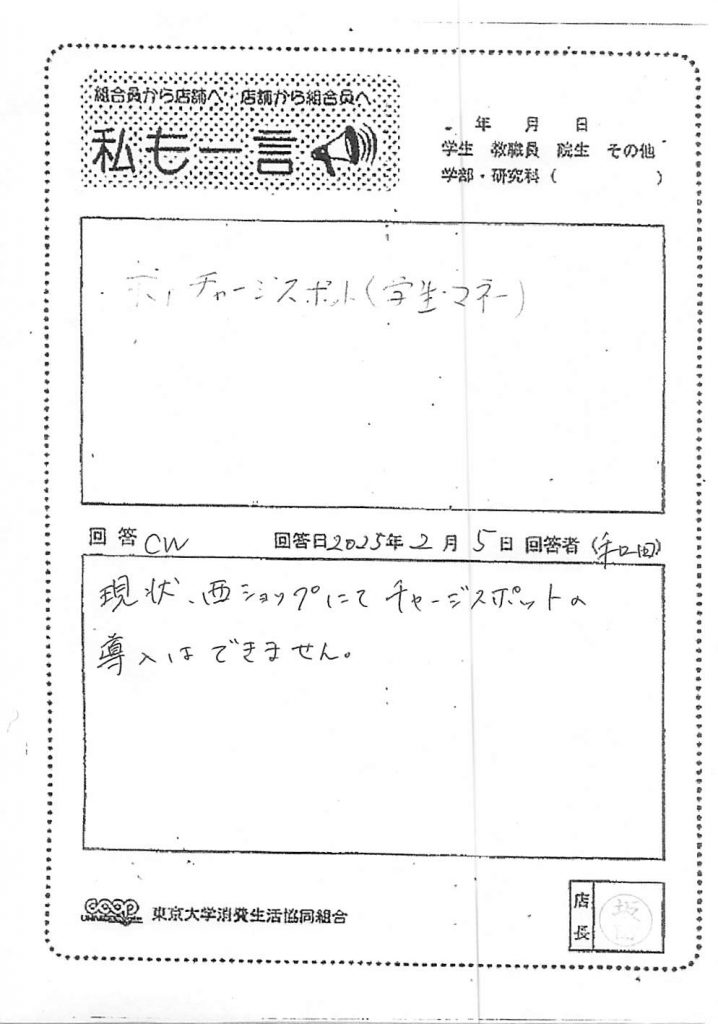 組合員から店舗へ 店舗から組合員へ
私も一言
年 月 日
学生 教職員 院生 その他
学部・研究科 ( )
チャージスポット(学生・マネー)
回答 CW 回答日2025年2月5日 回答者 (和田)
現状、西ショップにて チャージスポットの
導入はできません。
coop 東京大学消費生活協同組合
店長